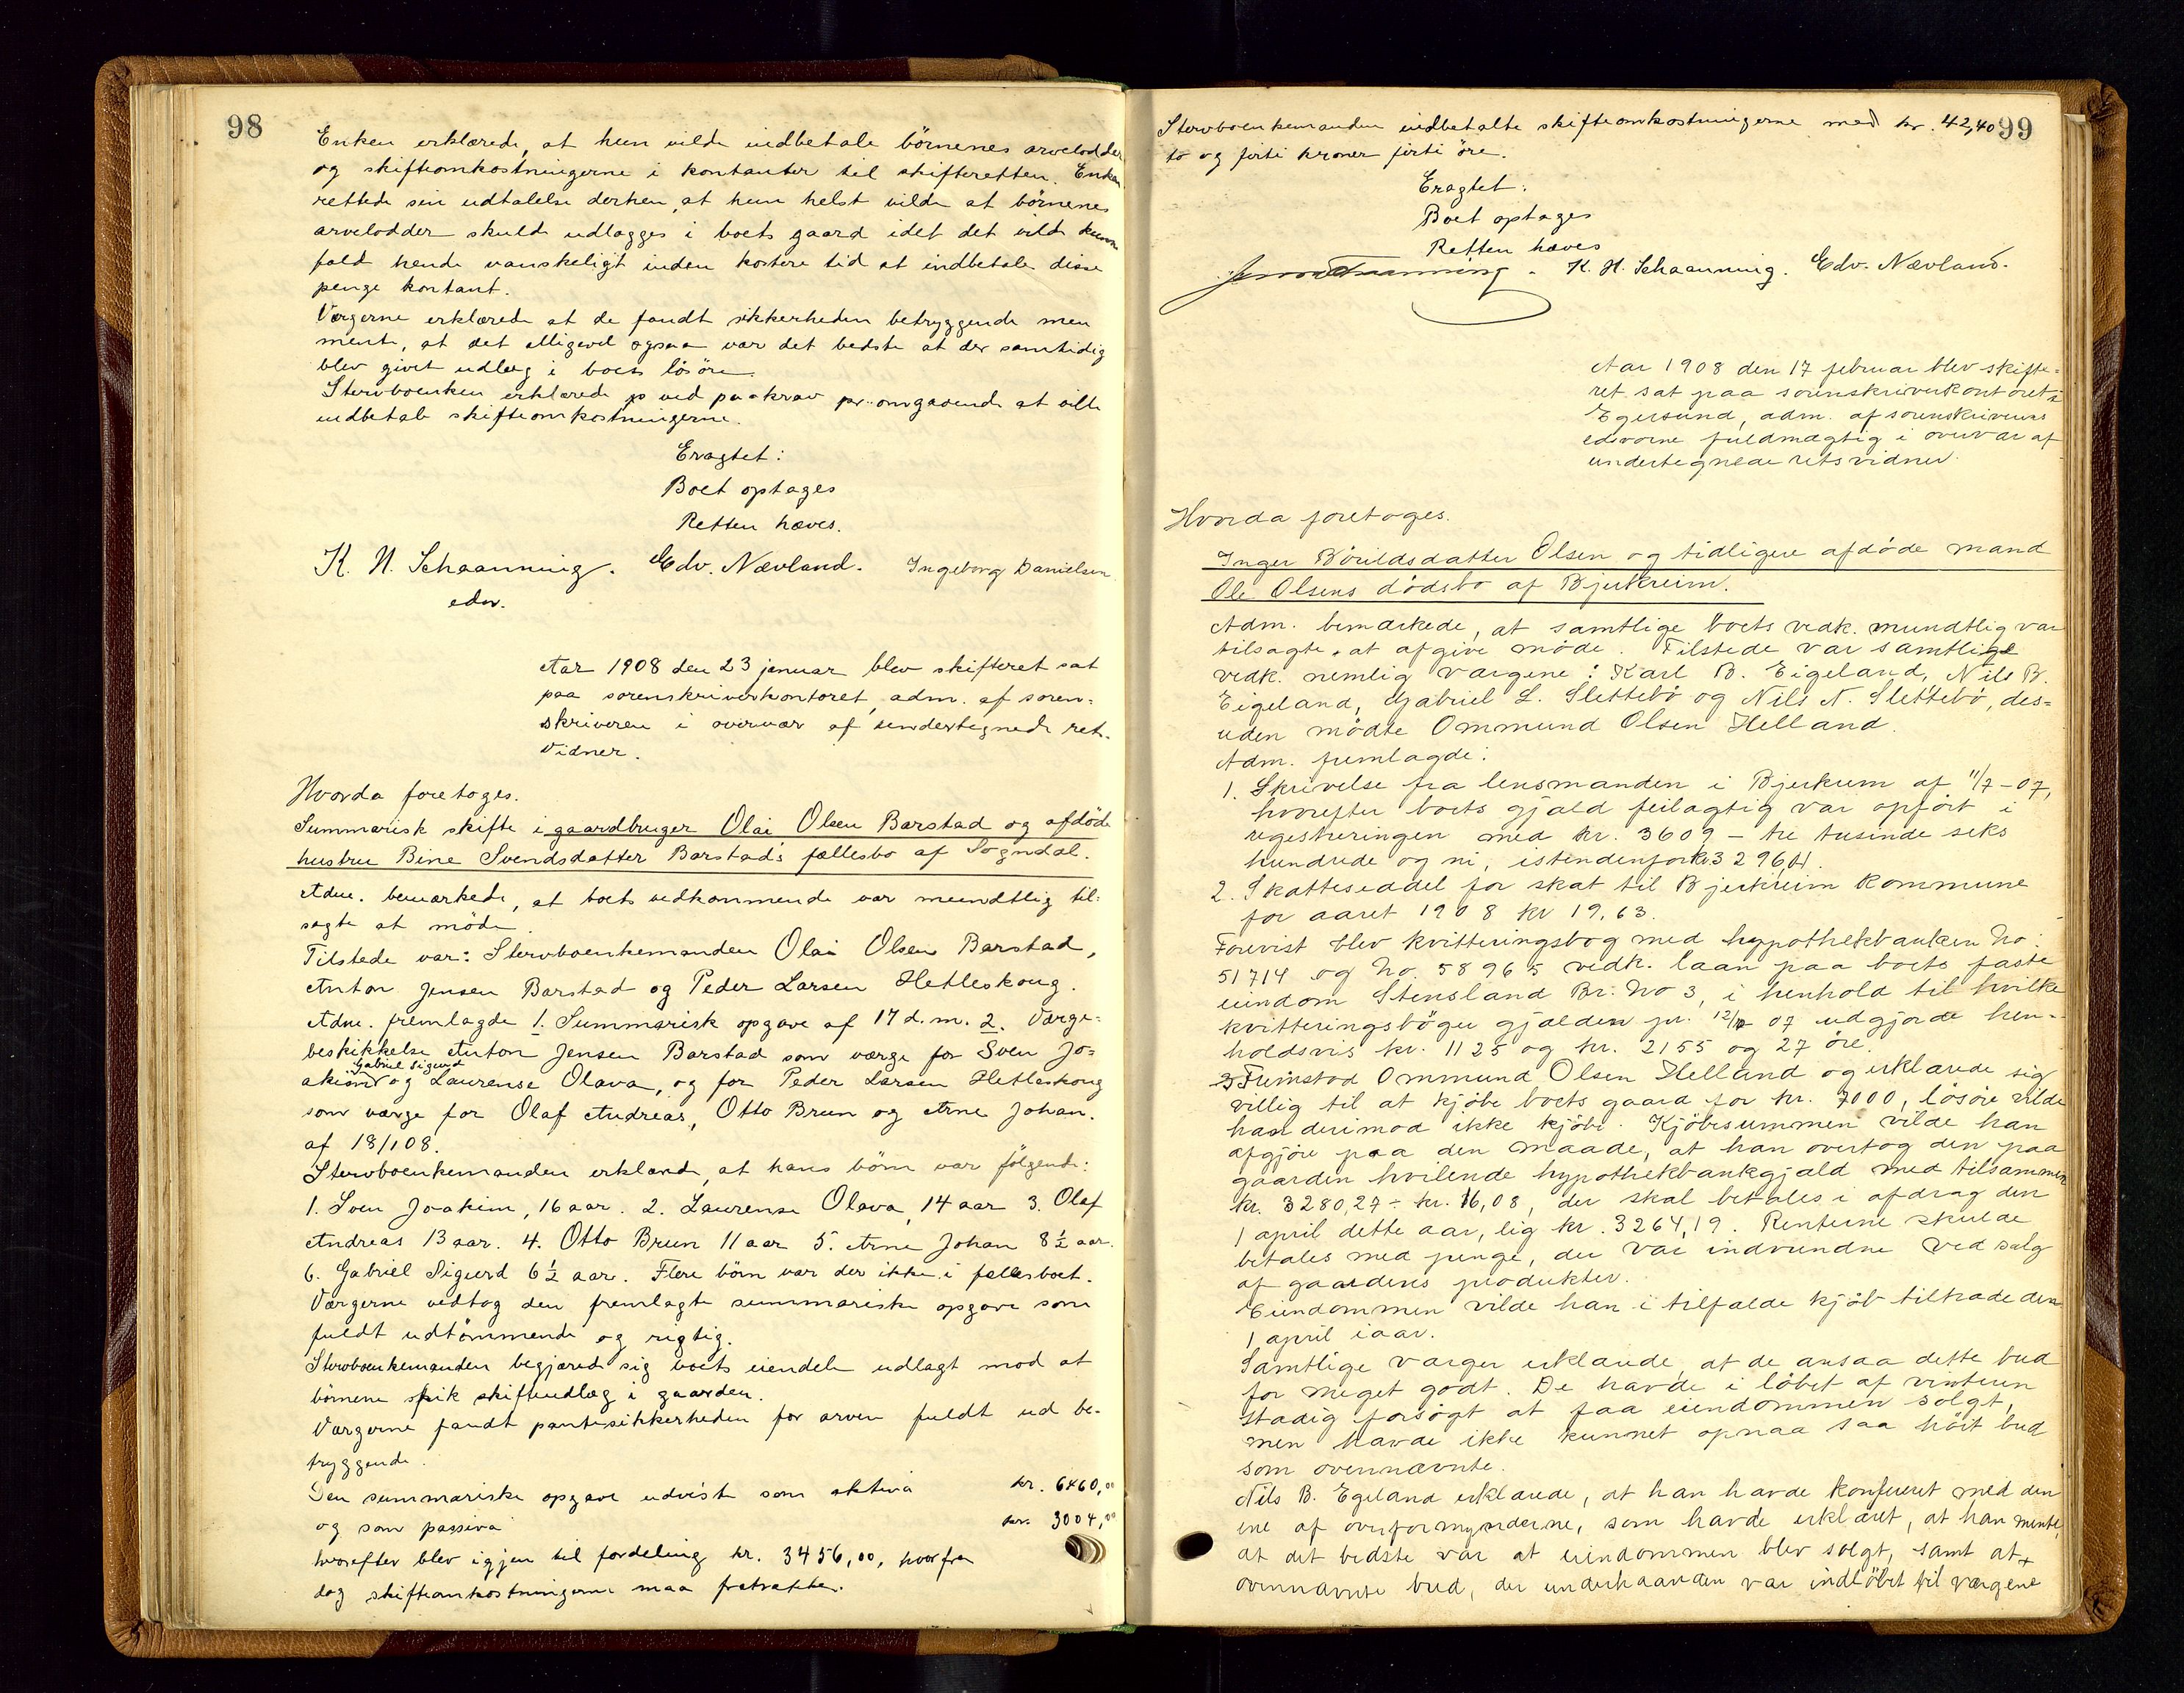 98
Enken erklærede, at hun vilde indbetale börnenes arvelodder
og skifteomkostningerne i kontanter til skifteretten. Enken
rettede sin udtalelse derhen, at hun helst vilde at börnenes
arvelodder skulde udlægges i boets gaard idet det vilde kunne
fald hende vanskeligt inden kortere tid at indbetale disse
penge kontant.
Værgerne erklærede at de fandt sikkerheden betryggende men
mente, at det alligevel ogsaa var det bedste at der samtidig
blev givet udlæg i boets lösöre.
Stervboenken erklærede ved paakrav pr. omgaaende at ville
indbetale skifteomkostningerne.
Eragtet:
Boet optages
Retten hæves.
K. H. Schaanning. Edv. Nævland. Ingeborg Danielsen
edsv.
Aar 1908 den 23 januar blev skifteret sat
paa sorenskriverkontoret, adm. af soren=
skriveren i overvær af undertegnede ret-
vidner.
Hvorda foretoges.
Summarisk skifte i gaardbruger Olai Olsen Barstad og afdöde
hustru Bine Svendsdatter Barstad's fællesbo af Sogndal.
Adm. bemærkede, at boets vedkommende var mundtlig til=
sagte at möde.
Tilstede var: Stervboenkemanden Olai Olsen Barstad,
Anton Jensen Barstad og Peder Larsen Hetleskoug.
Adm. fremlagde 1. Summarisk opgave af 17 d. m. 2. Værge=
beskikkelse Anton Jensen Barstad som værge for Sven Jo=
Gabriel Sigurd
akim og Laurense Olava, og for Peder Larsen Hetleskoug
som værge for Olaf Andreas, Otto Brun og Arne Johan.
af 18/1 08.
Stervboenkemanden erklærede, at hans börn var fölgende:
1. Sven Joakim, 16 aar. 2. Laurense Olava, 14 aar 3. Olaf
Andreas 13 aar. 4. Otto Brun 11 aar 5. Arne Johan 8½ aar.
6. Gabriel Sigurd 6½ aar. Flere börn var der ikke i fællesboet.
Værgerne vedtog den fremlagte summariske opgave som
fuldt udtömmende og rigtig.
Stervboenkemanden begjærede sig boets eiendele udlagt mod at
börnene fik skifteudlæg i gaarden.
Værgerne fandt pantesikkerheden for arven fuldt ud be-
tryggende.
Den summariske opgave udviste som aktiva kr. 6460,00
og som passiva kr. 3004,00
hvorefter blev igjen til fordeling kr. 3456,00, hvorfra
dog skifteomkostningerne maa fratrækkes.
99
Stervboenkemanden indbetalte skifteomkostningerne med kr. 42,40
to og firti kroner firti öre.
Eragtet:
Boet optages
Retten hæves
K. H. Schaanning. Edv. Nævland.
Aar 1908 den 17 februar blev skifte=
ret sat paa sorenskriverkontoret i
Egersund, adm. af sorenskriverens
edsvorne fuldmægtig i overvær af
undertegnede retsvidner.
Hvorda foretoges.
Inger Börildsdatter Olsen og tidligere afdöde mand
Ole Olsens dödsbo af Bjerkreim.
Adm. bemærkede, at samtlige boets vedk. mundtlig var
tilsagte at afgive möde. Tilstede var samtlige
vedk. nemlig værgene: Karl B. Eigeland, Nils B.
Eigeland, Gabriel L. Slettebö og Nils N. Slettebö, des=
uden mödte Ommund Olsen Helland.
Adm. fremlagde:
1. Skrivelse fra lensmanden i Bjerkreim af 11/7-07,
hvorefter boets gjæld feilagtig var opfört i
registreringen med kr. 3609 - tre tusinde seks
hundrede og ni, istedenfor kr. 3296,01.
2. Skatteseddel for skat til Bjerkreim kommune
for aaret 1908 kr 19,63.
Forevist blev kvitteringsbog med hypothekbanken No:
51714 og No. 58965 vedk. laan paa boets faste
eiendom Stensland Br. No 3, i henhold til hvilke
kvitteringsböger gjælden pr. 12/10 07 udgjorde hen-
holdsvis kr. 1125 og kr. 2155 og 27 öre.
3 Fremstod Ommund Olsen Helland og erklærede sig
villig til at kjöbe boets gaard for kr. 7000, lösöre vilde
han derimod ikke kjöbe. Kjöbesummen vilde han
afgjöre paa den maade, at han overtog den paa
gaarden hvilende hypothekbankgjæld med tilsammen
kr. 3280,27 ÷ kr. 16,08, der skal betales i afdrag den
1 april dette aar, lig kr. 3264,19. Renterne skulde
betales med penge, der var indvundne ved salg
af gaardens produkter.
Eiendommen vilde han i tilfælde kjöb tiltræde den
1 april iaar.
Samtlige værger erklærede, at de ansaa dette bud
for meget godt. De havde i löbet af vinteren
stadig forsögt at faa eiendommen solgt,
men havde ikke kunnet opnaa saa höit bud
som ovennævnte.
Nils B. Egeland erklærede, at han havde konfereret med den
ene af overformynderne, som havde erklæret, at han mente,
at det bedste var at eiendommen blev solgt, samt at
ovennævnte bud, der underhaanden var indlöbet til værgene